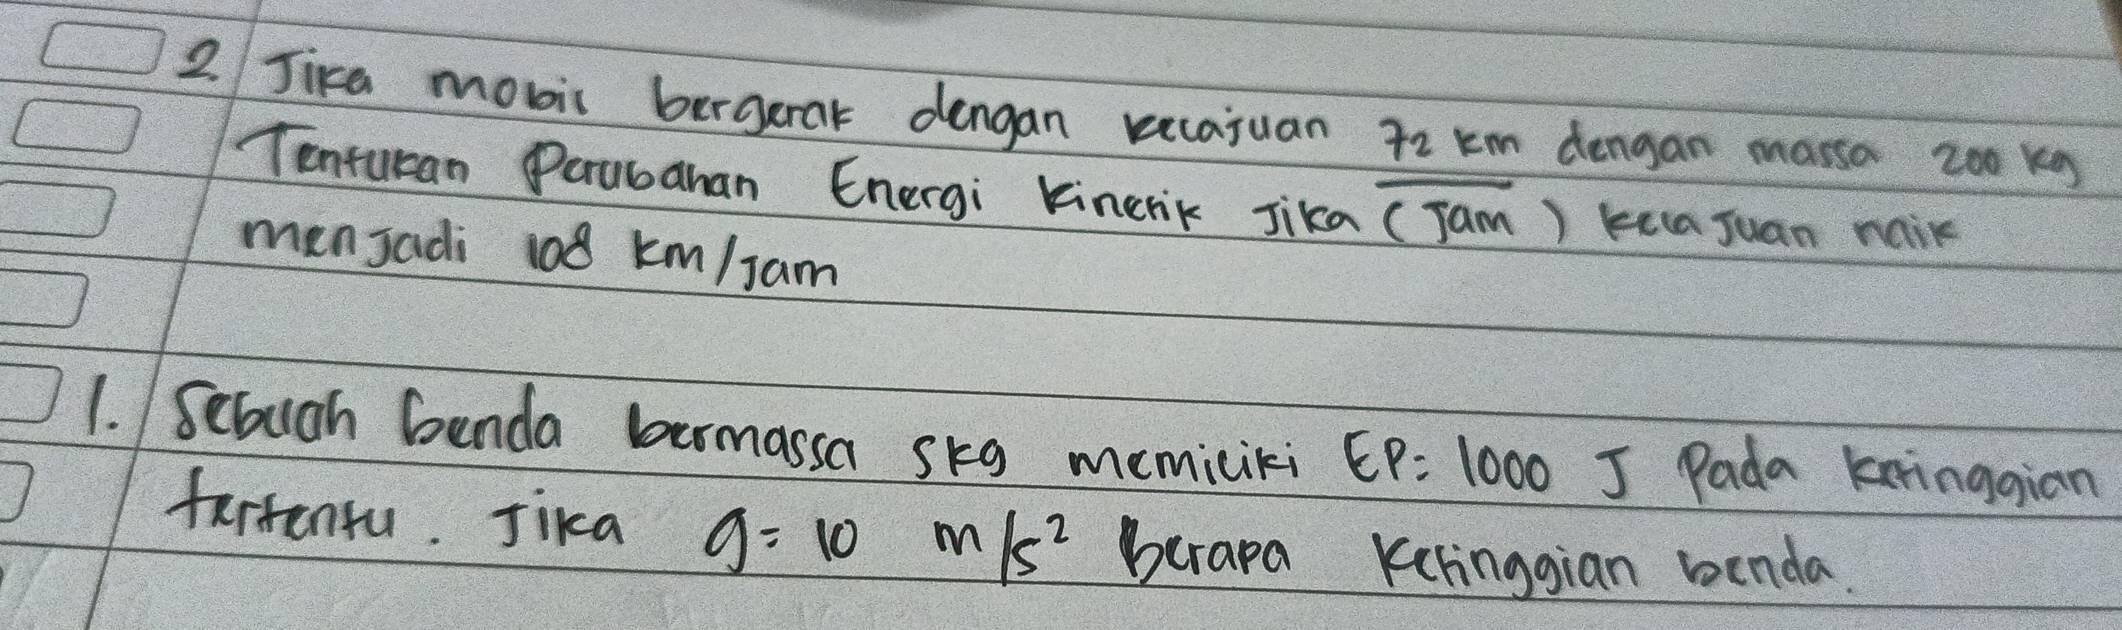 2. Jika mobil bergerak dengan kecajuan 72 km dengan massa 200 kg
Tentukan Perubahan Energi kinerik Jika (Jam) kecajuan naik
menjadi 108 km/Jam
1. Sebuah benda bermassa 5kg memiliki EP= 1000 J Pada keringgian
tertentu. Jika g= 10 m/s² Berapa Keringgian benda.